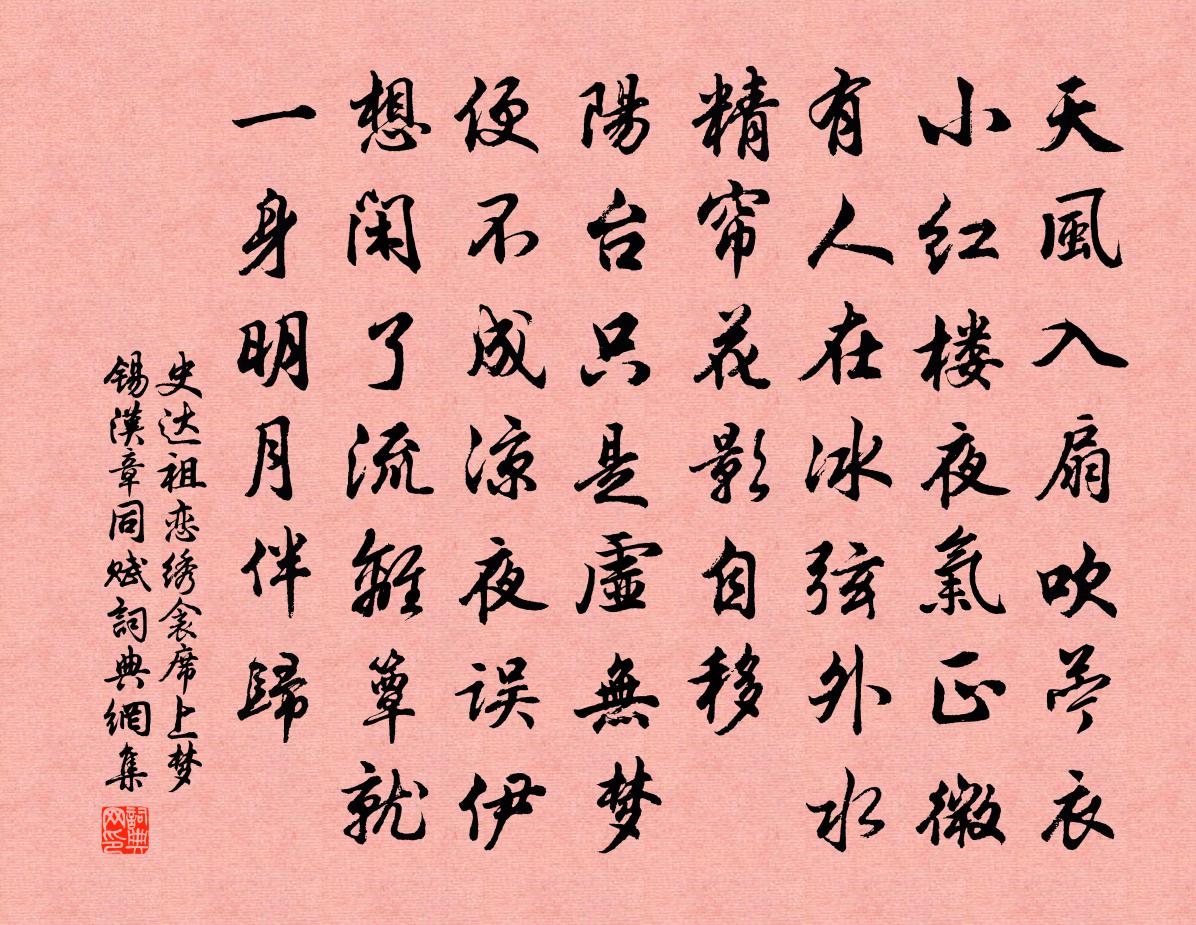 天風入扇吹苎衣
小红楼夜氣正微
有人在冰弦外水
精帘花影自移
陽台只是虛無梦
便不成凉夜误伊
想闲了流離簟就
一身明月伴歸
史达祖恋绣衾席上梦
锡漢章同赋詞典網集
詞典网印